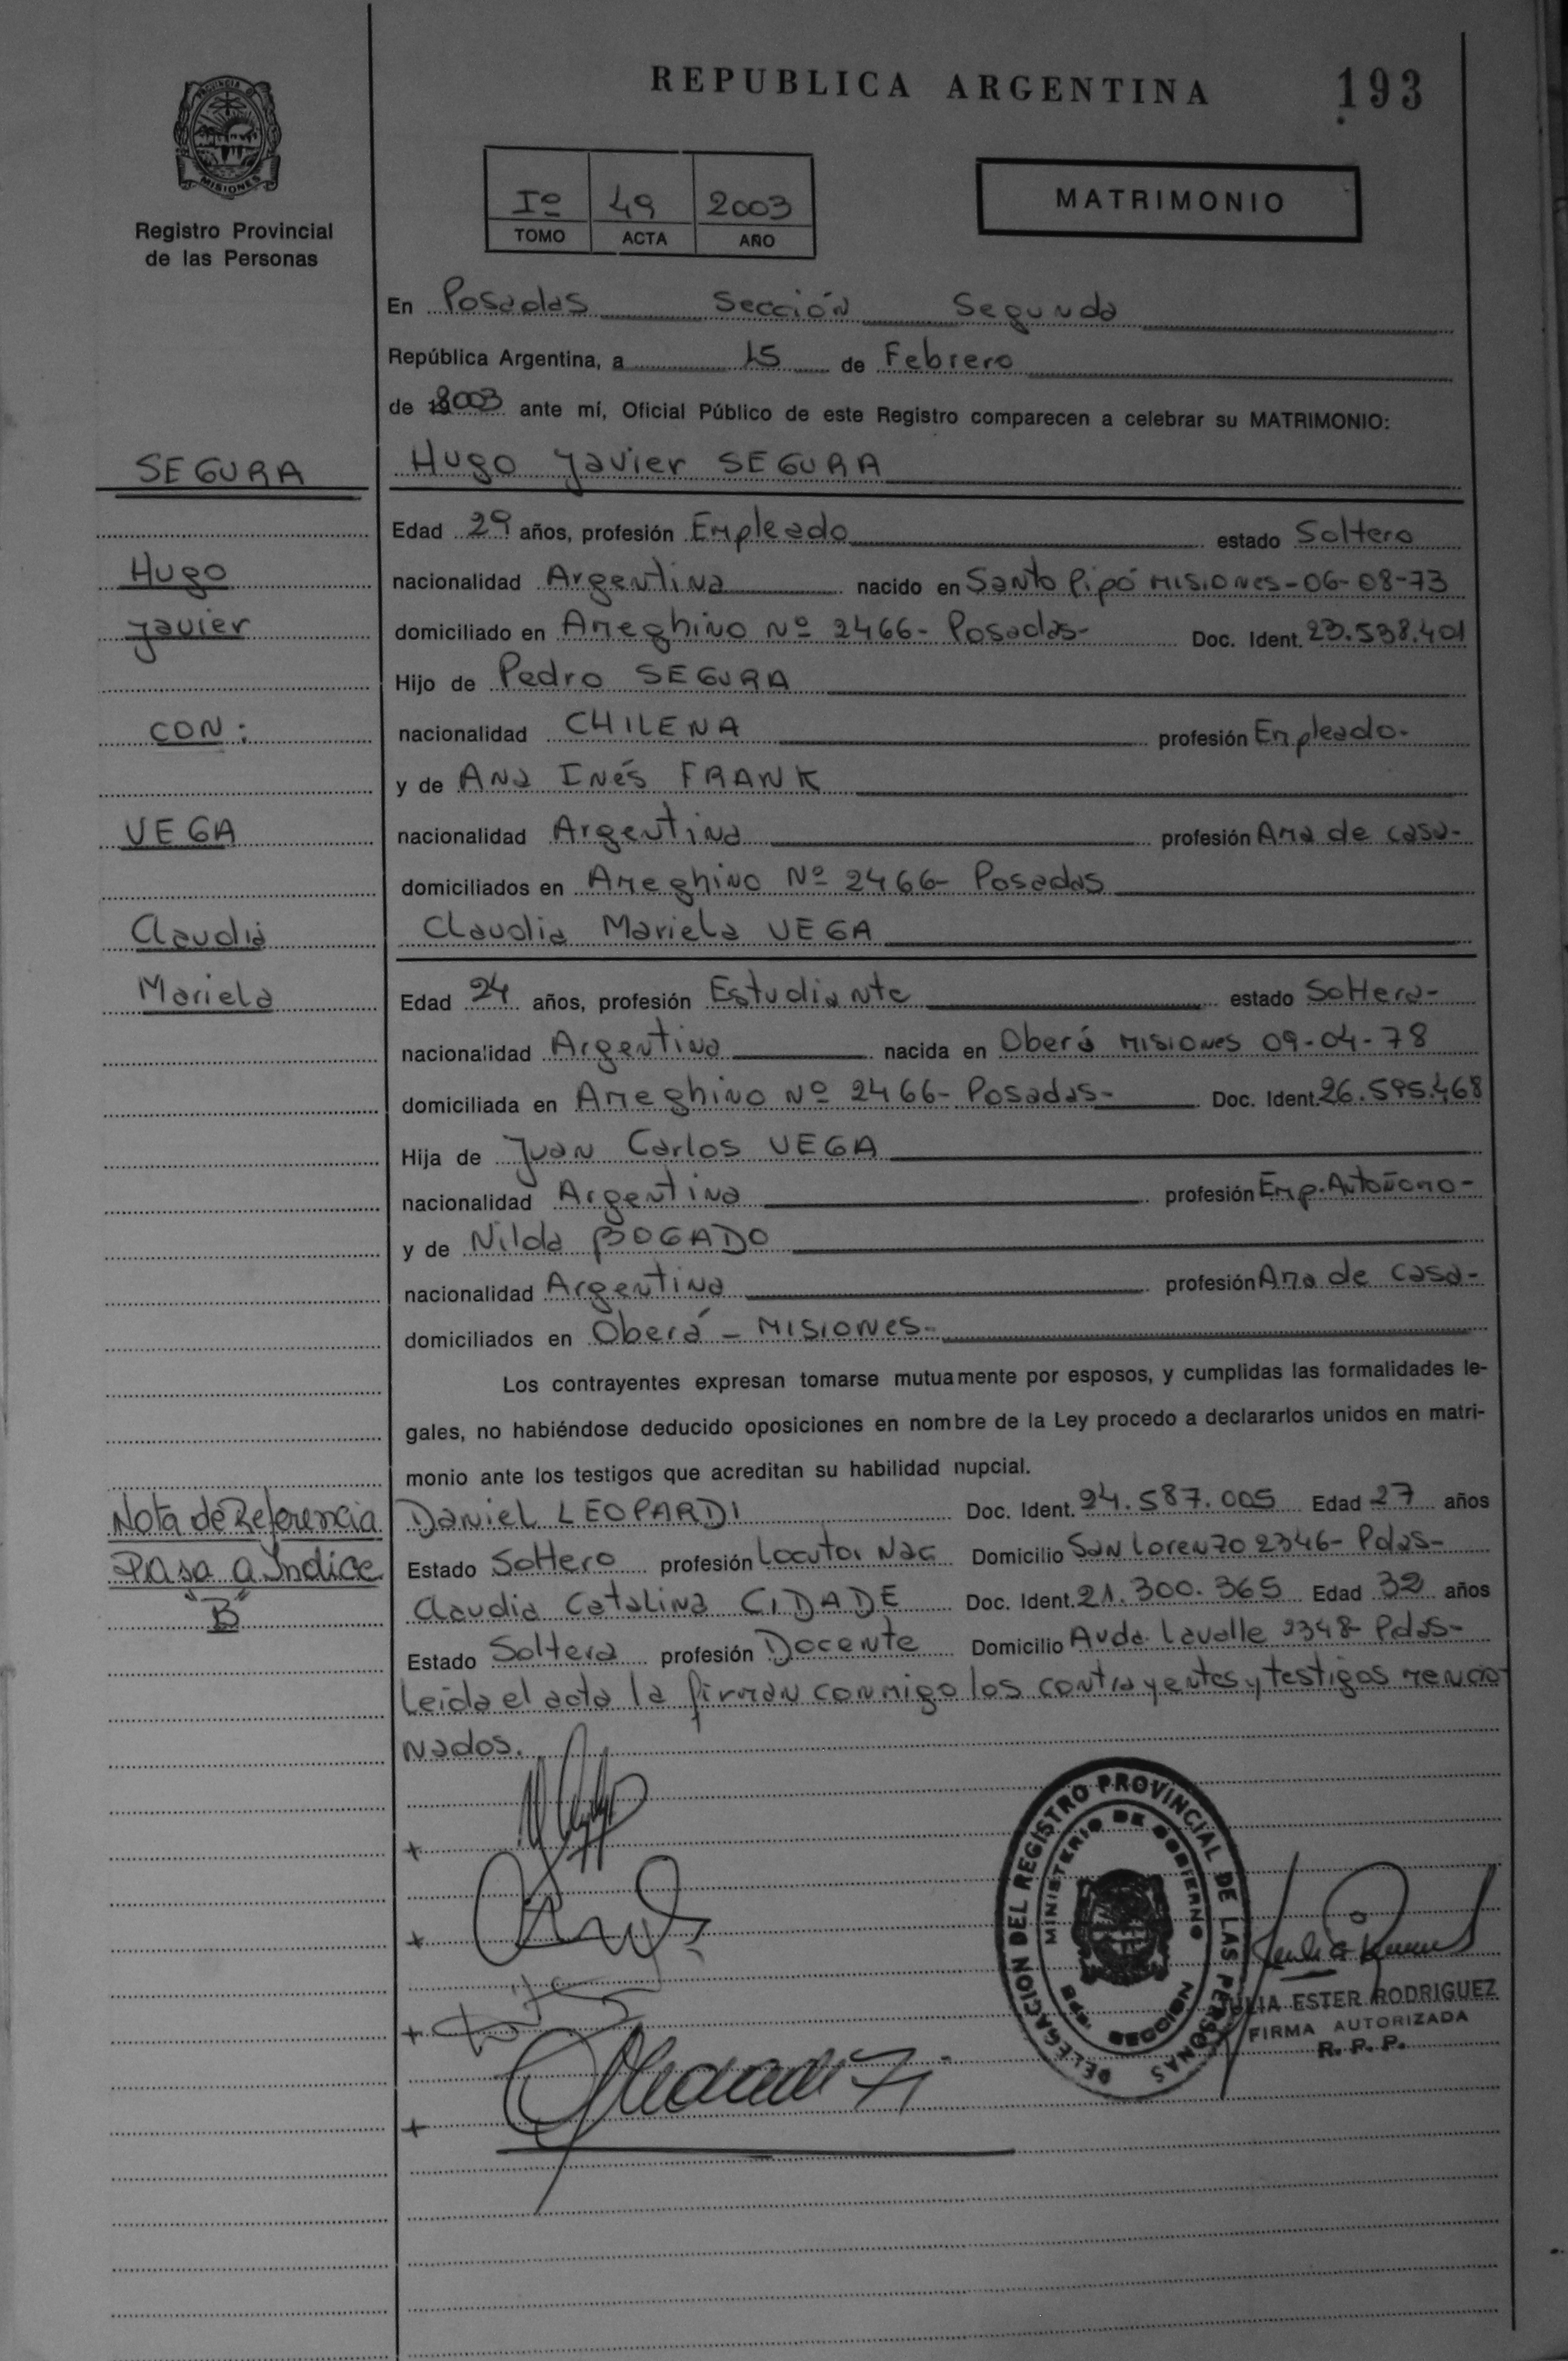 REPUBLICA ARGENTINA
193
PROVINCIA DE
MISIONES
Registro Provincial
de las Personas
Iº 49 2003
TOMO ACTA AÑO
MATRIMONIO
En Posadas Sección Segunda
República Argentina, a 15 de Febrero
de 2003 ante mí, Oficial Público de este Registro comparecen a celebrar su MATRIMONIO:
SEGURA
Hugo Javier SEGURA
Edad 29 años, profesión Empleado estado Soltero
Hugo
nacionalidad Argentina nacido en Santo Pipó Misiones-06-08-73
Javier
domiciliado en Ameghino Nº 2466- Posadas- Doc. Ident. 23.538.401
Hijo de Pedro SEGURA
CON:
nacionalidad CHILENA profesión Empleado-
y de Ana Inés FRANK
VEGA
nacionalidad Argentina profesión Ama de casa-
domiciliados en Ameghino Nº 2466- Posadas
Claudia
Claudia Mariela VEGA
Mariela
Edad 24 años, profesión Estudiante estado Soltera-
nacionalidad Argentina nacida en Oberá Misiones 09-04-78
domiciliada en Ameghino Nº 2466- Posadas- Doc. Ident. 26.595.468
Hija de Juan Carlos VEGA
nacionalidad Argentina profesión Emp. Autónomo-
y de Nilda BOGADO
nacionalidad Argentina profesión Ama de Casa-
domiciliados en Oberá - Misiones-
Los contrayentes expresan tomarse mutuamente por esposos, y cumplidas las formalidades le-
gales, no habiéndose deducido oposiciones en nombre de la Ley procedo a declararlos unidos en matri-
monio ante los testigos que acreditan su habilidad nupcial.
Nota de Referencia
Pasa a Indice
"B"
Daniel LEOPARDI Doc. Ident. 24.587.005 Edad 27 años
Estado Soltero profesión Locutor Nac Domicilio San Lorenzo 2346- Pdas-
Claudia Catalina CIDADE Doc. Ident. 21.300.365 Edad 32 años
Estado Soltera profesión Docente Domicilio Avda. Lavalle 2348- Pdas-
Leida el acta la firman conmigo los contrayentes y testigos mencio
nados.
DELEGACION DEL REGISTRO PROVINCIAL DE LAS PERSONAS
MINISTERIO DE GOBIERNO
JULIA ESTER RODRIGUEZ
FIRMA AUTORIZADA
R. P. P.